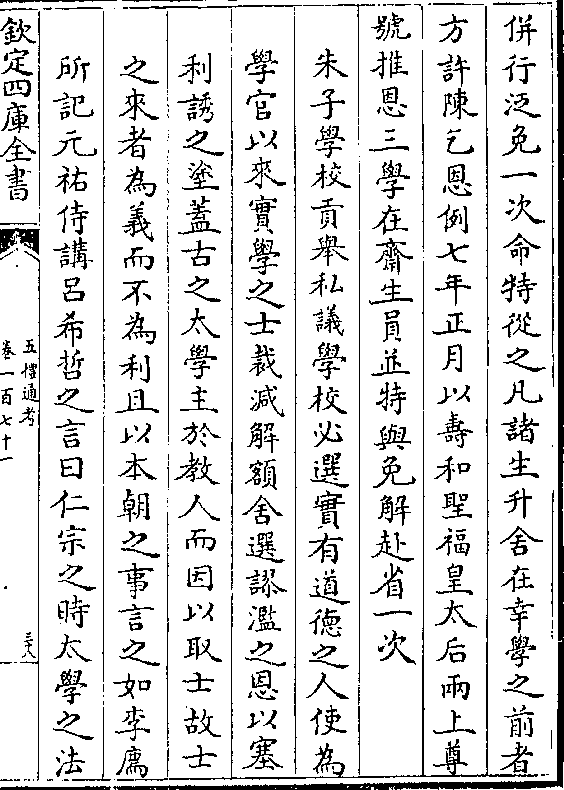 併行泛免一次命特從之凡諸生升舍在幸學之前者
方許陳乞恩例七年正月以壽和聖福皇太后兩上尊
號推恩三學在齋生員並特與免解赴省一次
朱子學校貢舉私議學校必選實有道德之人使為
學官以來實學之士裁減解額舍選謬濫之恩以塞
利誘之塗蓋古之太學主於教人而因以取士故士
之來者為義而不為利且以本朝之事言之如李廌
所記元祐侍講呂希哲之言曰仁宗之時太學之法
欽定四庫全書
五禮通考
卷一百七十一
三八